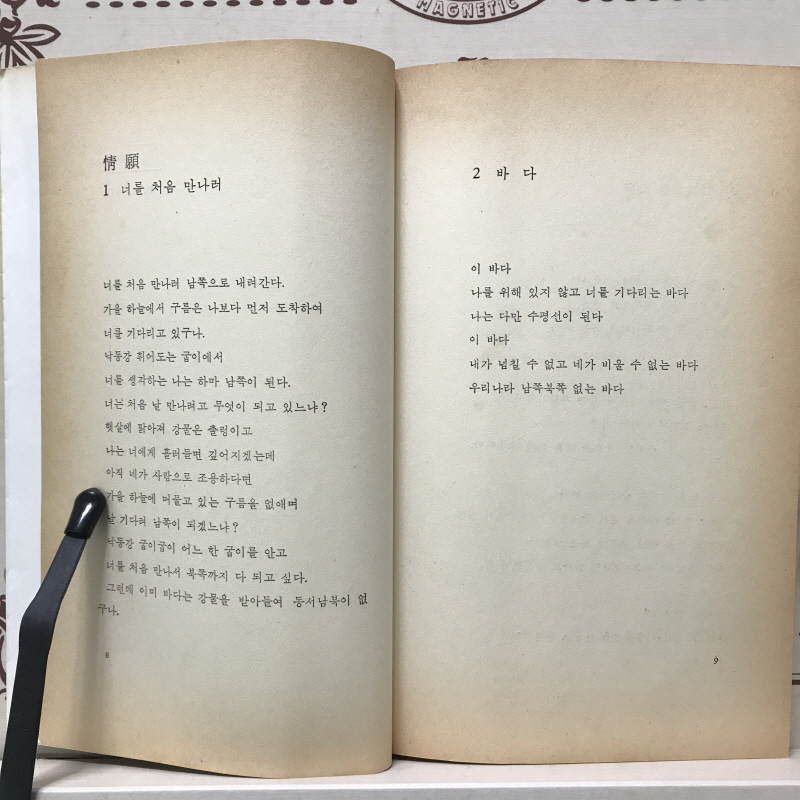 MAGNETIC
情願
1 너를 처음 만나러
너를 처음 만나러 남쪽으로 내려간다.
가을 하늘에서 구름은 나보다 먼저 도착하여
너를 기다리고 있구나.
낙동강 휘어도는 굽이에서
너를 생각하는 나는 하마 남쪽이 된다.
너는 처음 날 만나려고 무엇이 되고 있느냐?
햇살에 닳아져 강물은 출렁이고
나는 너에게 흘러들면 깊어지겠는데
아직 네가 사람으로 조용하다면
가을 하늘에 머물고 있는 구름을 없애며
날 기다려 남쪽이 되겠느냐?
낙동강 굽이굽이 어느 한 굽이를 안고
너를 처음 만나서 북쪽까지 다 되고 싶다.
그런데 이미 바다는 강물을 받아들여 동서남북이 없
구나.
8
2 바다
이 바다
나를 위해 있지 않고 너를 기다리는 바다
나는 다만 수평선이 된다
이 바다
내가 넘칠 수 없고 네가 비울 수 없는 바다
우리나라 남쪽북쪽 없는 바다
9